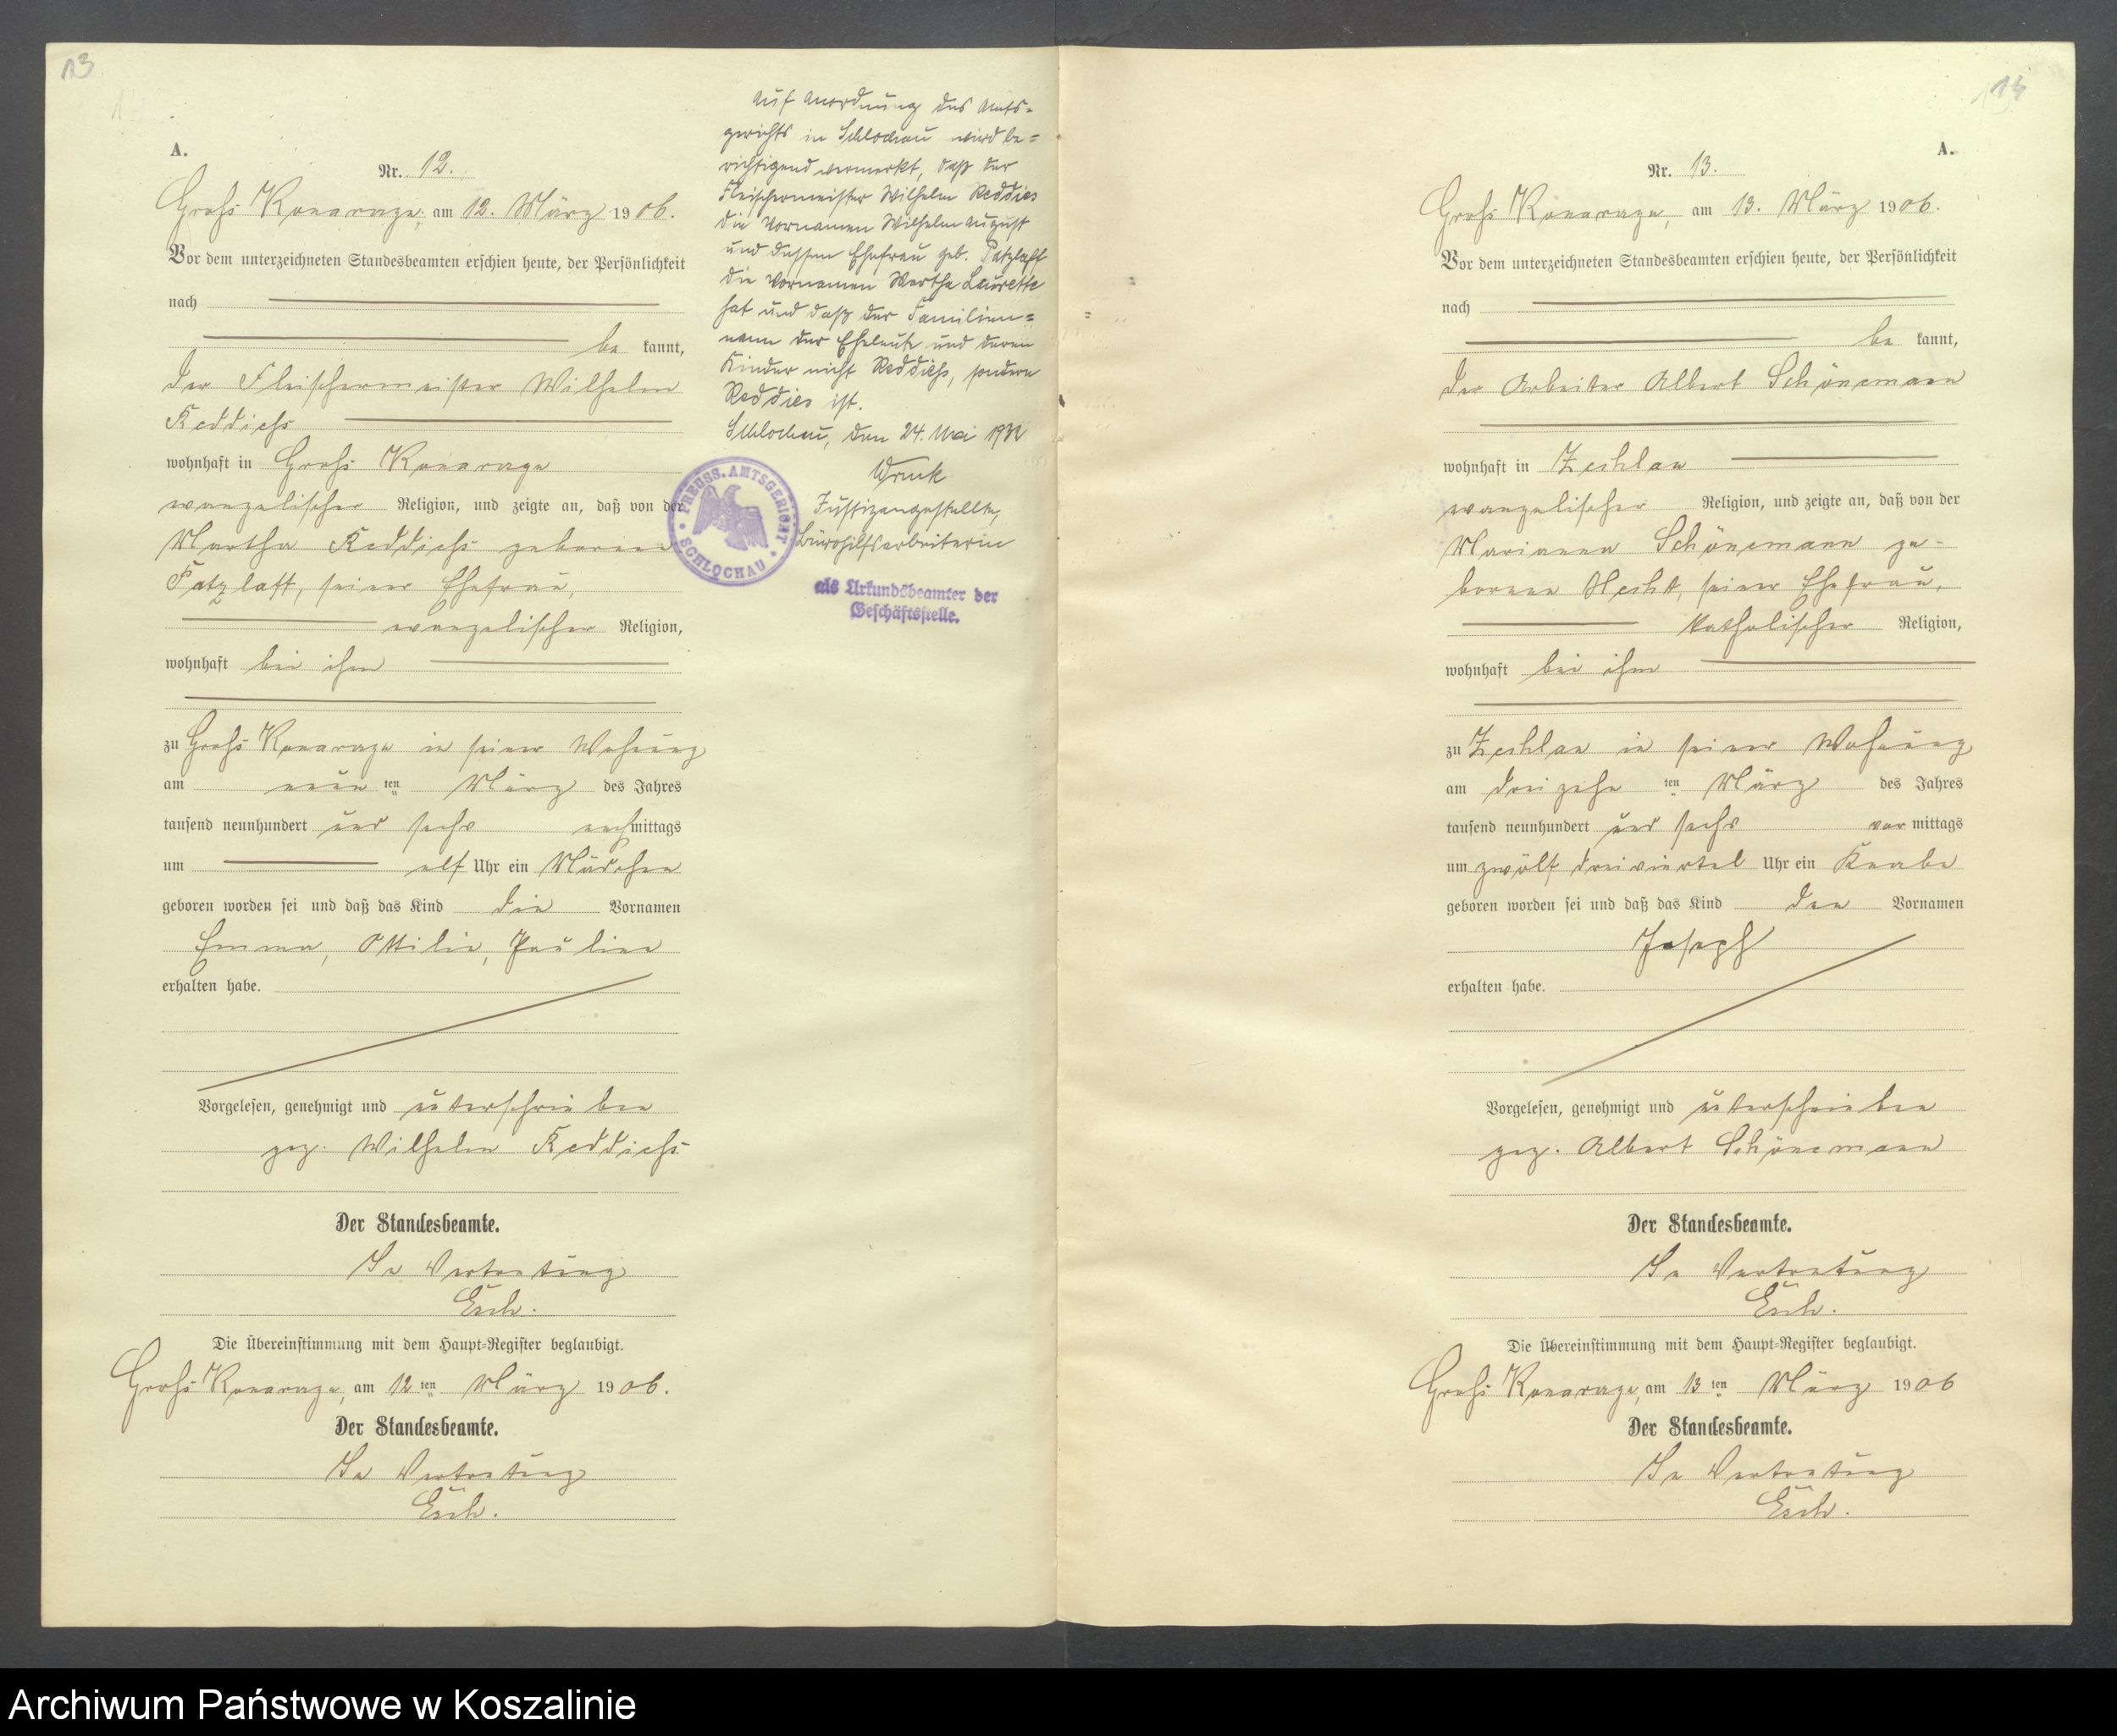 13
A.
Nr. 12.
Groß Konarczyn, am 12. März 1906.
Vor dem unterzeichneten Standesbeamten erschien heute, der Persönlichkeit
nach
be kannt,
der Fleischermeister Wilhelm
Reddiehs
wohnhaft in Groß
evangelischer Religion, und zeigte an, daß von der
Martha Reddiehs geborene
Patzlaff, seiner Ehefrau,
evangelischer Religion,
wohnhaft bei ihm
zu Groß in seiner Wohnung
am neun ten März des Jahres
tausend neunhundert und sechs nachmittags
um elf Uhr ein Mädchen
geboren worden sei und daß das Kind die Vornamen
Emma, Ottilie, Pauline
erhalten habe.
Vorgelesen, genehmigt und unterschrieben
gez. Wilhelm Reddiehs
Der Standesbeamte.
In Vertretung
Esch.
Die Übereinstimmung mit dem Haupt-Register beglaubigt.
Groß am 12ten März 1906.
Der Standesbeamte.
In Vertretung
Esch.
Auf Anordnung des Amts-
gerichts in Schlochau wird be-
richtigend vermerkt, daß der
Fleischermeister Wilhelm Reddies
die Vornamen Wilhelm August
und dessen Ehefrau geb. Patzlaff
die Vornamen Martha Laurette
hat und daß der Familien-
name der Eheleute und deren
Kinder nicht Reddiehs, sondern
Reddies ist.
Schlochau, den 24. Mai 1932
Justizangestellte,
Bürohilfsarbeiterin
PREUSS. AMTSGERICHT
SCHLOCHAU
als Urkundsbeamter der
Geschäftsstelle.
A.
Nr. 13.
Groß am 13. März 1906.
Vor dem unterzeichneten Standesbeamten erschien heute, der Persönlichkeit
nach
be kannt,
der Arbeiter Albert Schönemann
wohnhaft in Zechlau
evangelischer Religion, und zeigte an, daß von der
Marianna Schönemann ge-
borene Hecht, seiner Ehefrau,
katholischer Religion,
wohnhaft bei ihm
zu Zechlau in seiner Wohnung
am dreizehn ten März des Jahres
tausend neunhundert und sechs vor mittags
um zwölf dreiviertel Uhr ein Knabe
geboren worden sei und daß das Kind den Vornamen
Joseph
erhalten habe.
Vorgelesen, genehmigt und unterschrieben
gez. Albert Schönemann
Der Standesbeamte.
In Vertretung
Esch.
Die Übereinstimmung mit dem Haupt-Register beglaubigt.
Groß am 13ten März 1906
Der Standesbeamte.
In Vertretung
Esch.
Archiwum Państwowe w Koszalinie